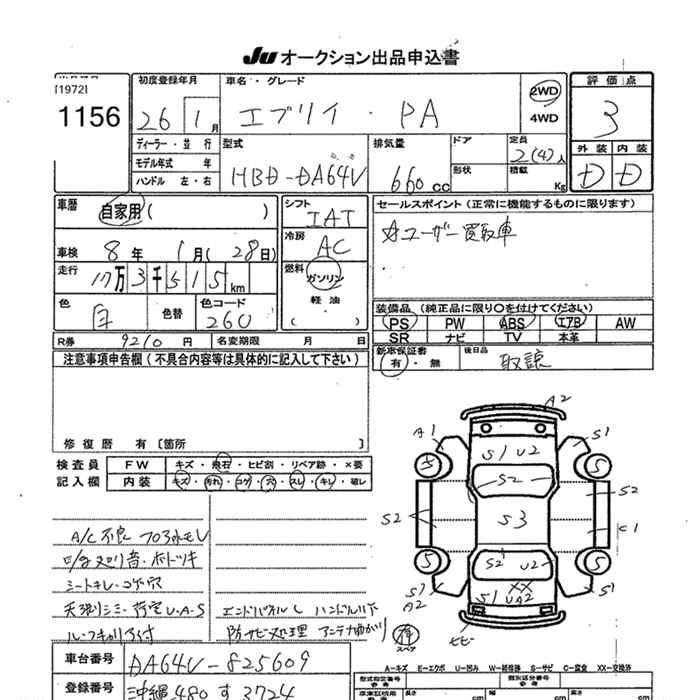 Ju オークション出品申込書
[1972]
1156
初度登録年月
26 1月
車名・グレード
エブリイ・PA
2WD
4WD
評価点
3
外装 内装
D D
ディーラー・並行
モデル年式 年
ハンドル 左・右
型式
HBD-DA64V
排気量
660cc
ドア
形状
定員
2(4)人
積載
Kg
車歴
自家用( )
車検 8年 1月(28日)
走行 17万3千515km
色 白
色替
色コード
260
シフト
IAT
冷房
AC
燃料
ガソリン
軽油
( )
セールスポイント(正常に機能するものに限ります)
☆ユーザー買取車
装備品(純正品に限り○を付けてください)
PS PW ABS エアB AW
SR ナビ TV 本革
新車保証書
有・無
後日品
取説
R券 9210円
名変期限 月 日
注意事項申告欄(不具合内容等は具体的に記入して下さい)
修復歴 有〔箇所 〕
検査員
記入欄
FW キズ・飛石・ヒビ割・リペア跡・×要
内装 キズ・汚れ・コゲ・穴・スレ・キレ・破レ
A/C不良 フロ水モレ
シートキレ・コゲ穴
天張りシミ・荷室U・A・S
防サビ処理 アンテナ曲がり
A2
A1
S1 U2
S1
S
S
S2
S2
S2
S3
C1
S
S
S2 U2
S1
A2
XX
S1 UA2
S1
A2
スペア
ヒビ
A-キズ E-エクボ U-凹み W-補修跡 S-サビ C-腐食 XX-交換済
車台番号 DA64V-825609
登録番号 沖縄480す3724
型式指定番号
参考
類別区分番号
参考
cm cm cm